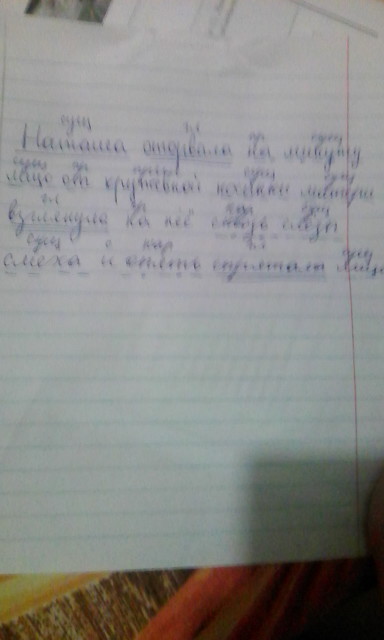 сущ гл пр сущ
Наташа оторвала на минуту
сущ пр прил сущ
лицо от кружевной косынки матери
гл пр
взглянула на неё сквозь слёзы
сущ с нар гл сущ
смеха и опять спрятала лицо